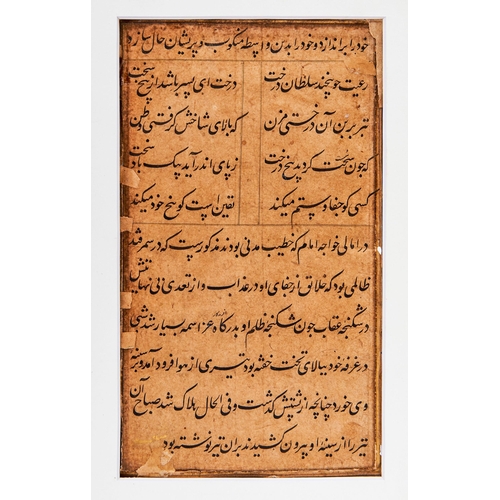 خود را براندازد و خود را بدین واسطه منکوب و پریشان حال سازد
رعیت چو بیخند سلطان درخت درخت ای پسر باشد از بیخ سخت
تبر بر بن آن درختی مزن که بالای شاخش گرفتی وطن
که چون سخت کردید بیخ درخت ز پای اندر آید چه یک باد سخت
کسی کو جفا و ستم میکند یقین است کو بیخ خود میکند
در امالی خواجه امام که خطیب مدنی بودند مذکورست که در سمرقند
ظالمی بود که خلایق از جفای او در عذاب و از تعدی بی نهایتش
در شکنجه عقاب چون شکنجه ظلم او بدرگاه عز اسمه بسیار شد شبی
در غرفه خود ببالای تخت خفته بود تیری از هوا فرود آمد و بر سینه
وی خورد چنانچه از پشتش گذشت و فی الحال هلاک شد صباح آن
تیر را از سینه او بیرون کشیدند بر آن تیر نوشته بود